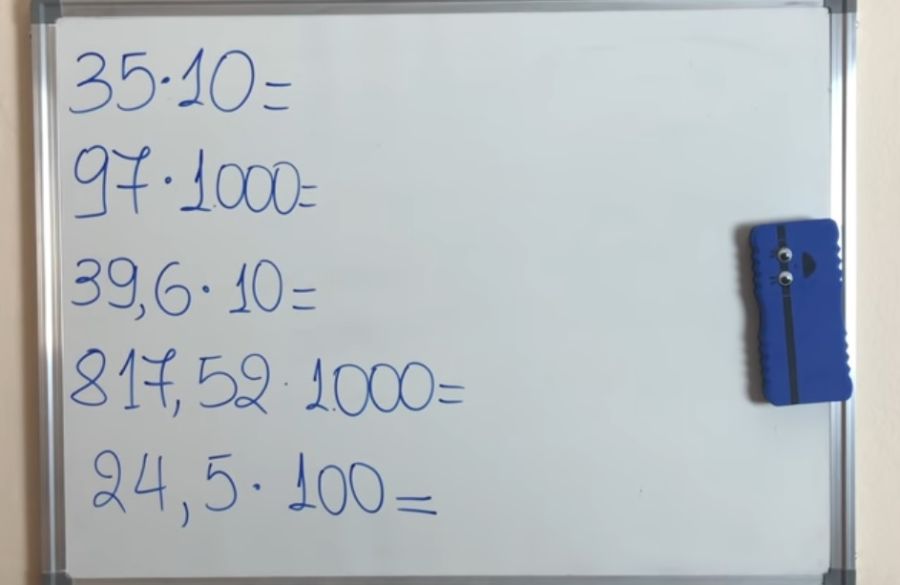 35·10=
97·1000=
39,6·10=
817,52·1000=
24,5·100=